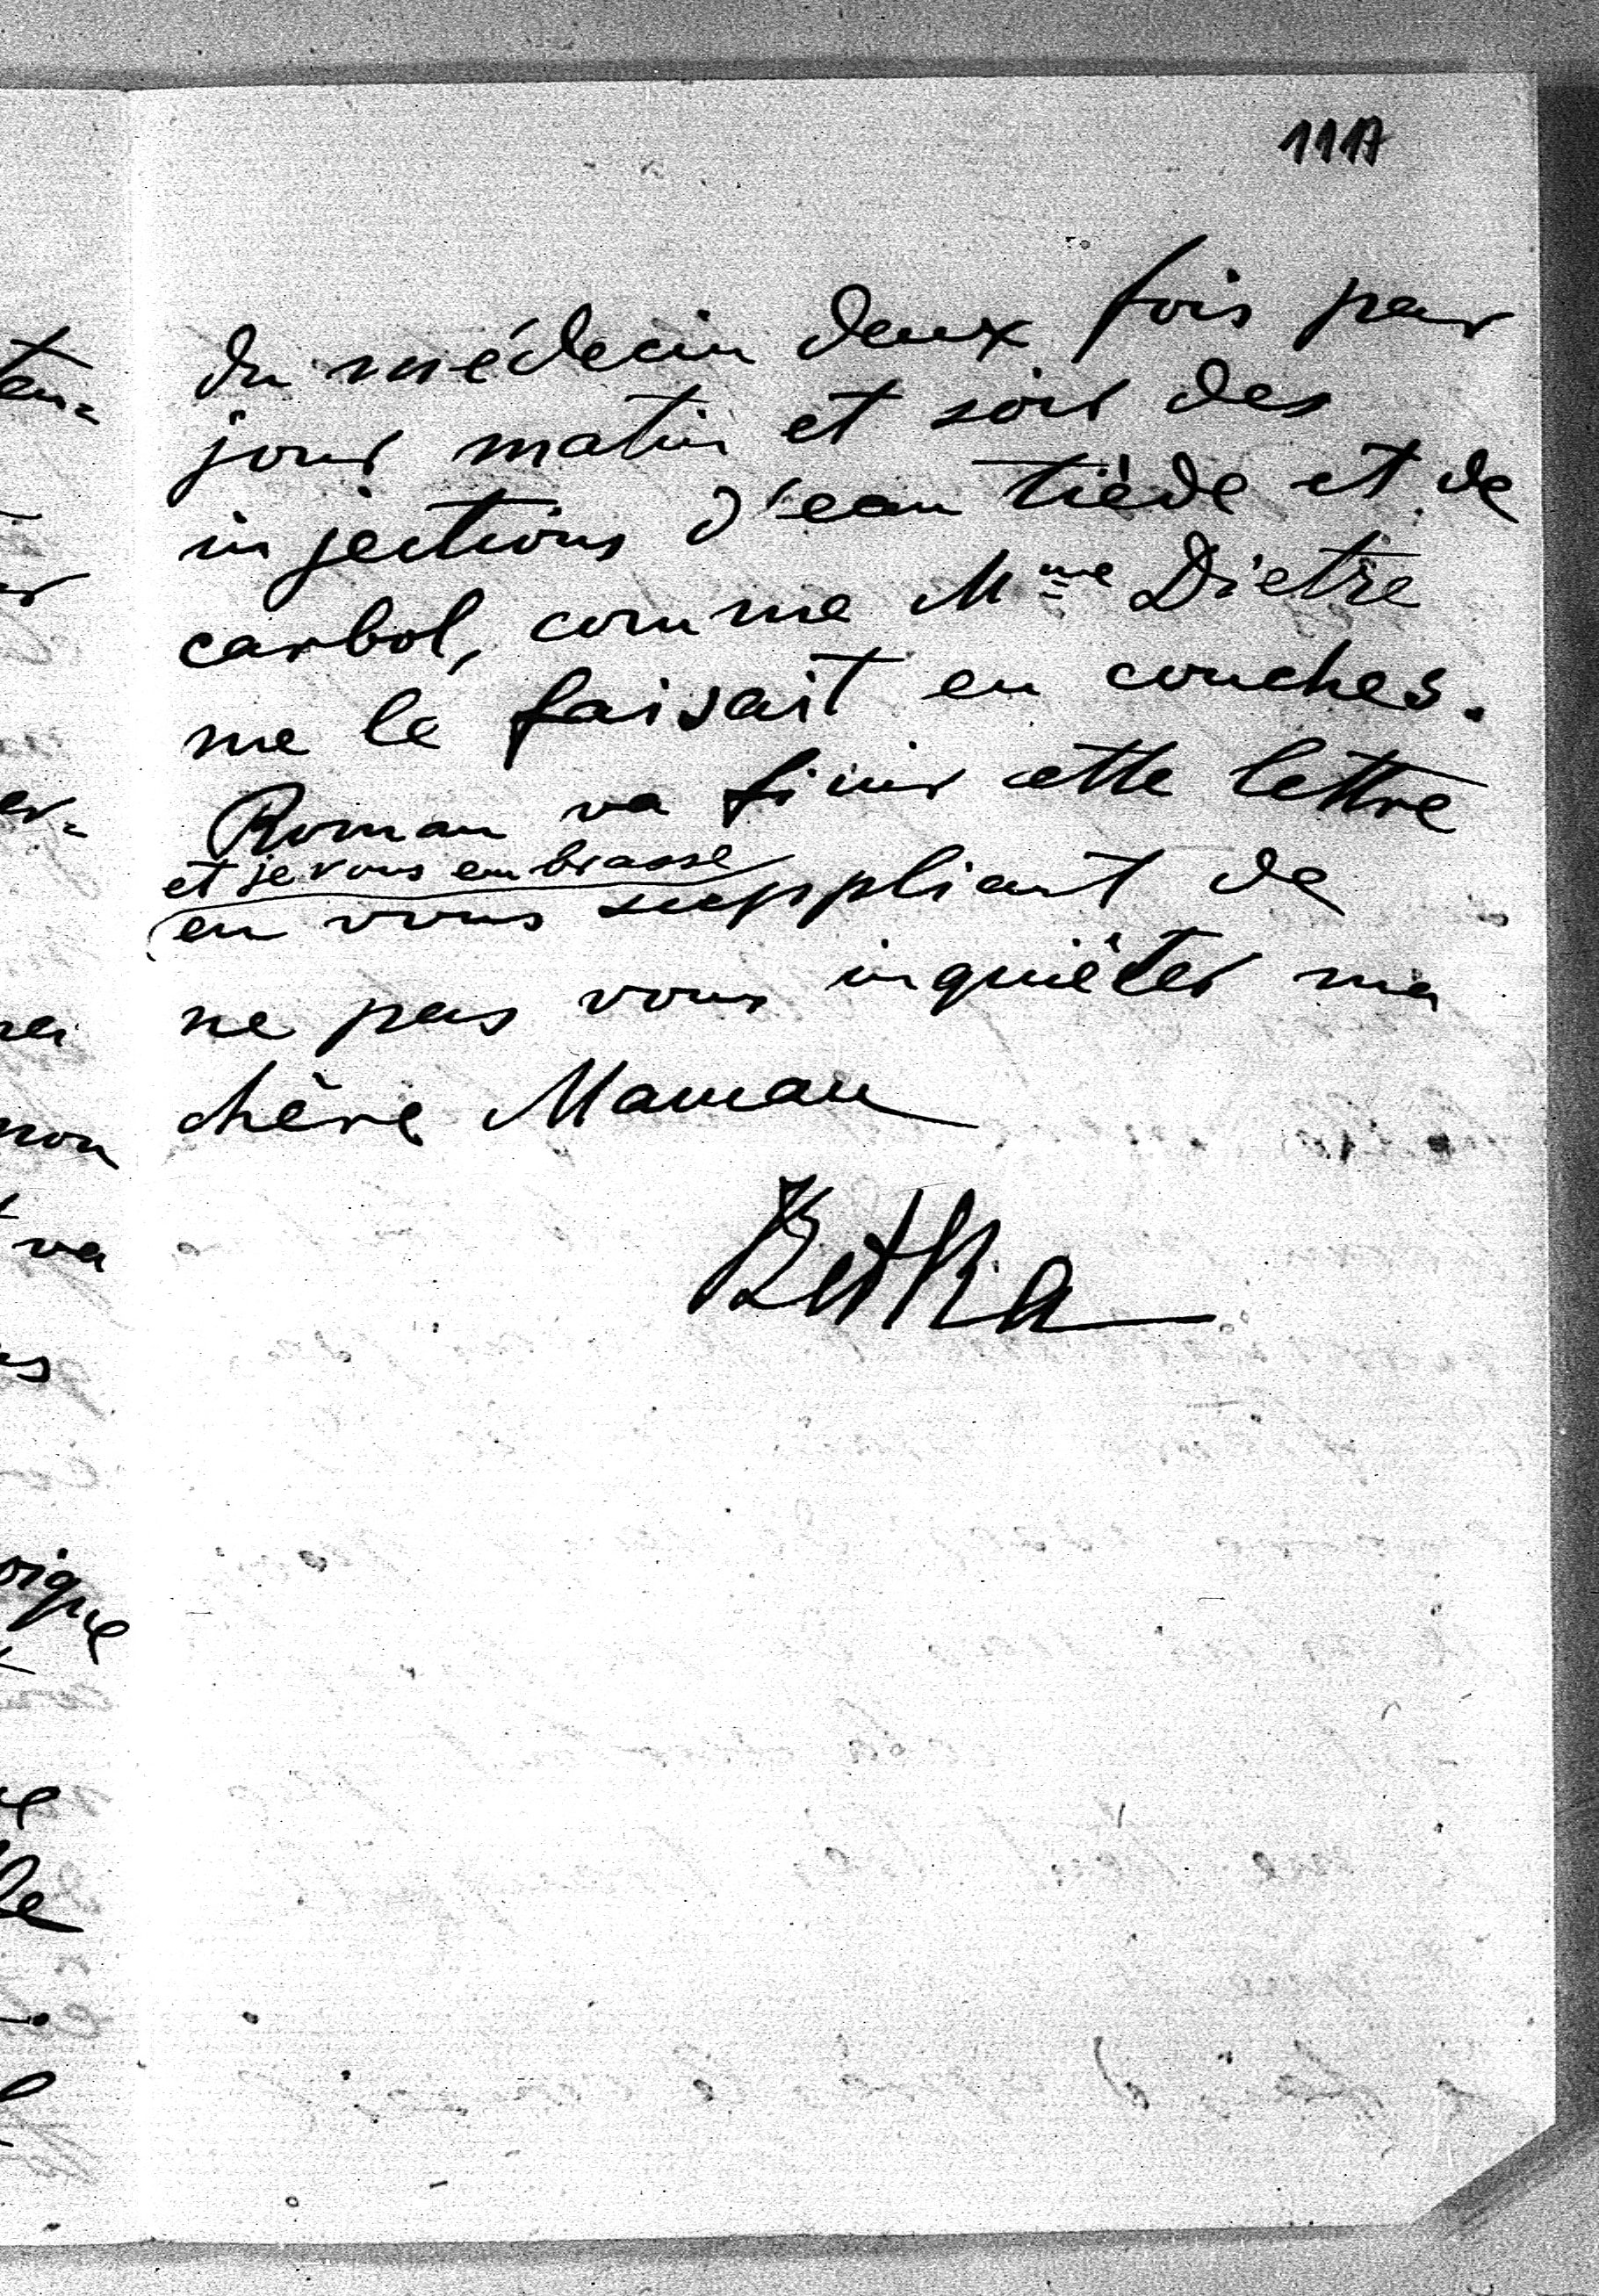 1117
du médecin deux fois par
jour matin et soir des
injections d'eau tiède et de
carbol, comme Mme Dietre
me le faisait en couches.
Roman va finir cette lettre
et je vous embrasse
en vous suppliant de
ne pas vous inquièter ma
chère Maman
Betka